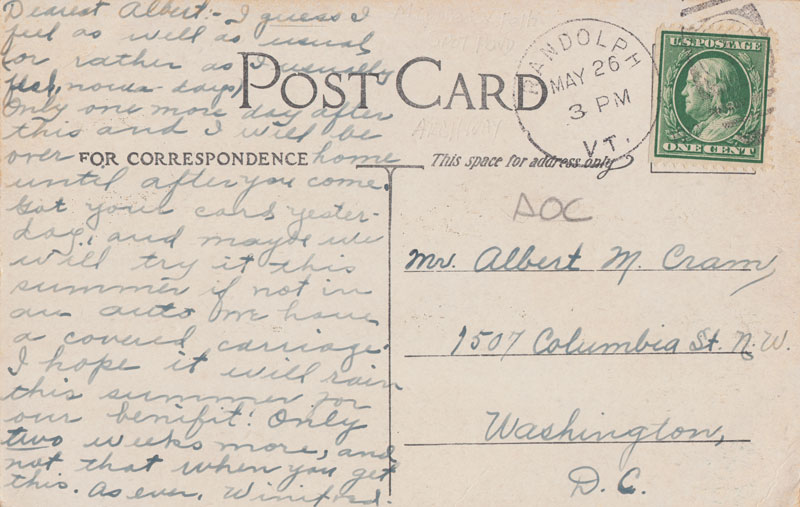 Dearest Albert:- I guess I
feel as well as usual
or rather as I usually
feel, nowa-days,
Only one more day after
this and I will be
over home
until after you come.
Got your card yester-
day, and maybe we
will try it this
summer if not in
an auto we have
a covered carriage.
I hope it will rain
this summer for
our benifit! Only
two weeks more, and
not that when you get
this. As ever, Winifred.
POST CARD
FOR CORRESPONDENCE
This space for address only
RANDOLPH
MAY 26
3 PM
VT.
U.S. POSTAGE
ONE CENT
AOC
Mr. Albert M. Cram,
1507 Columbia St. N.W.
Washington,
D.C.